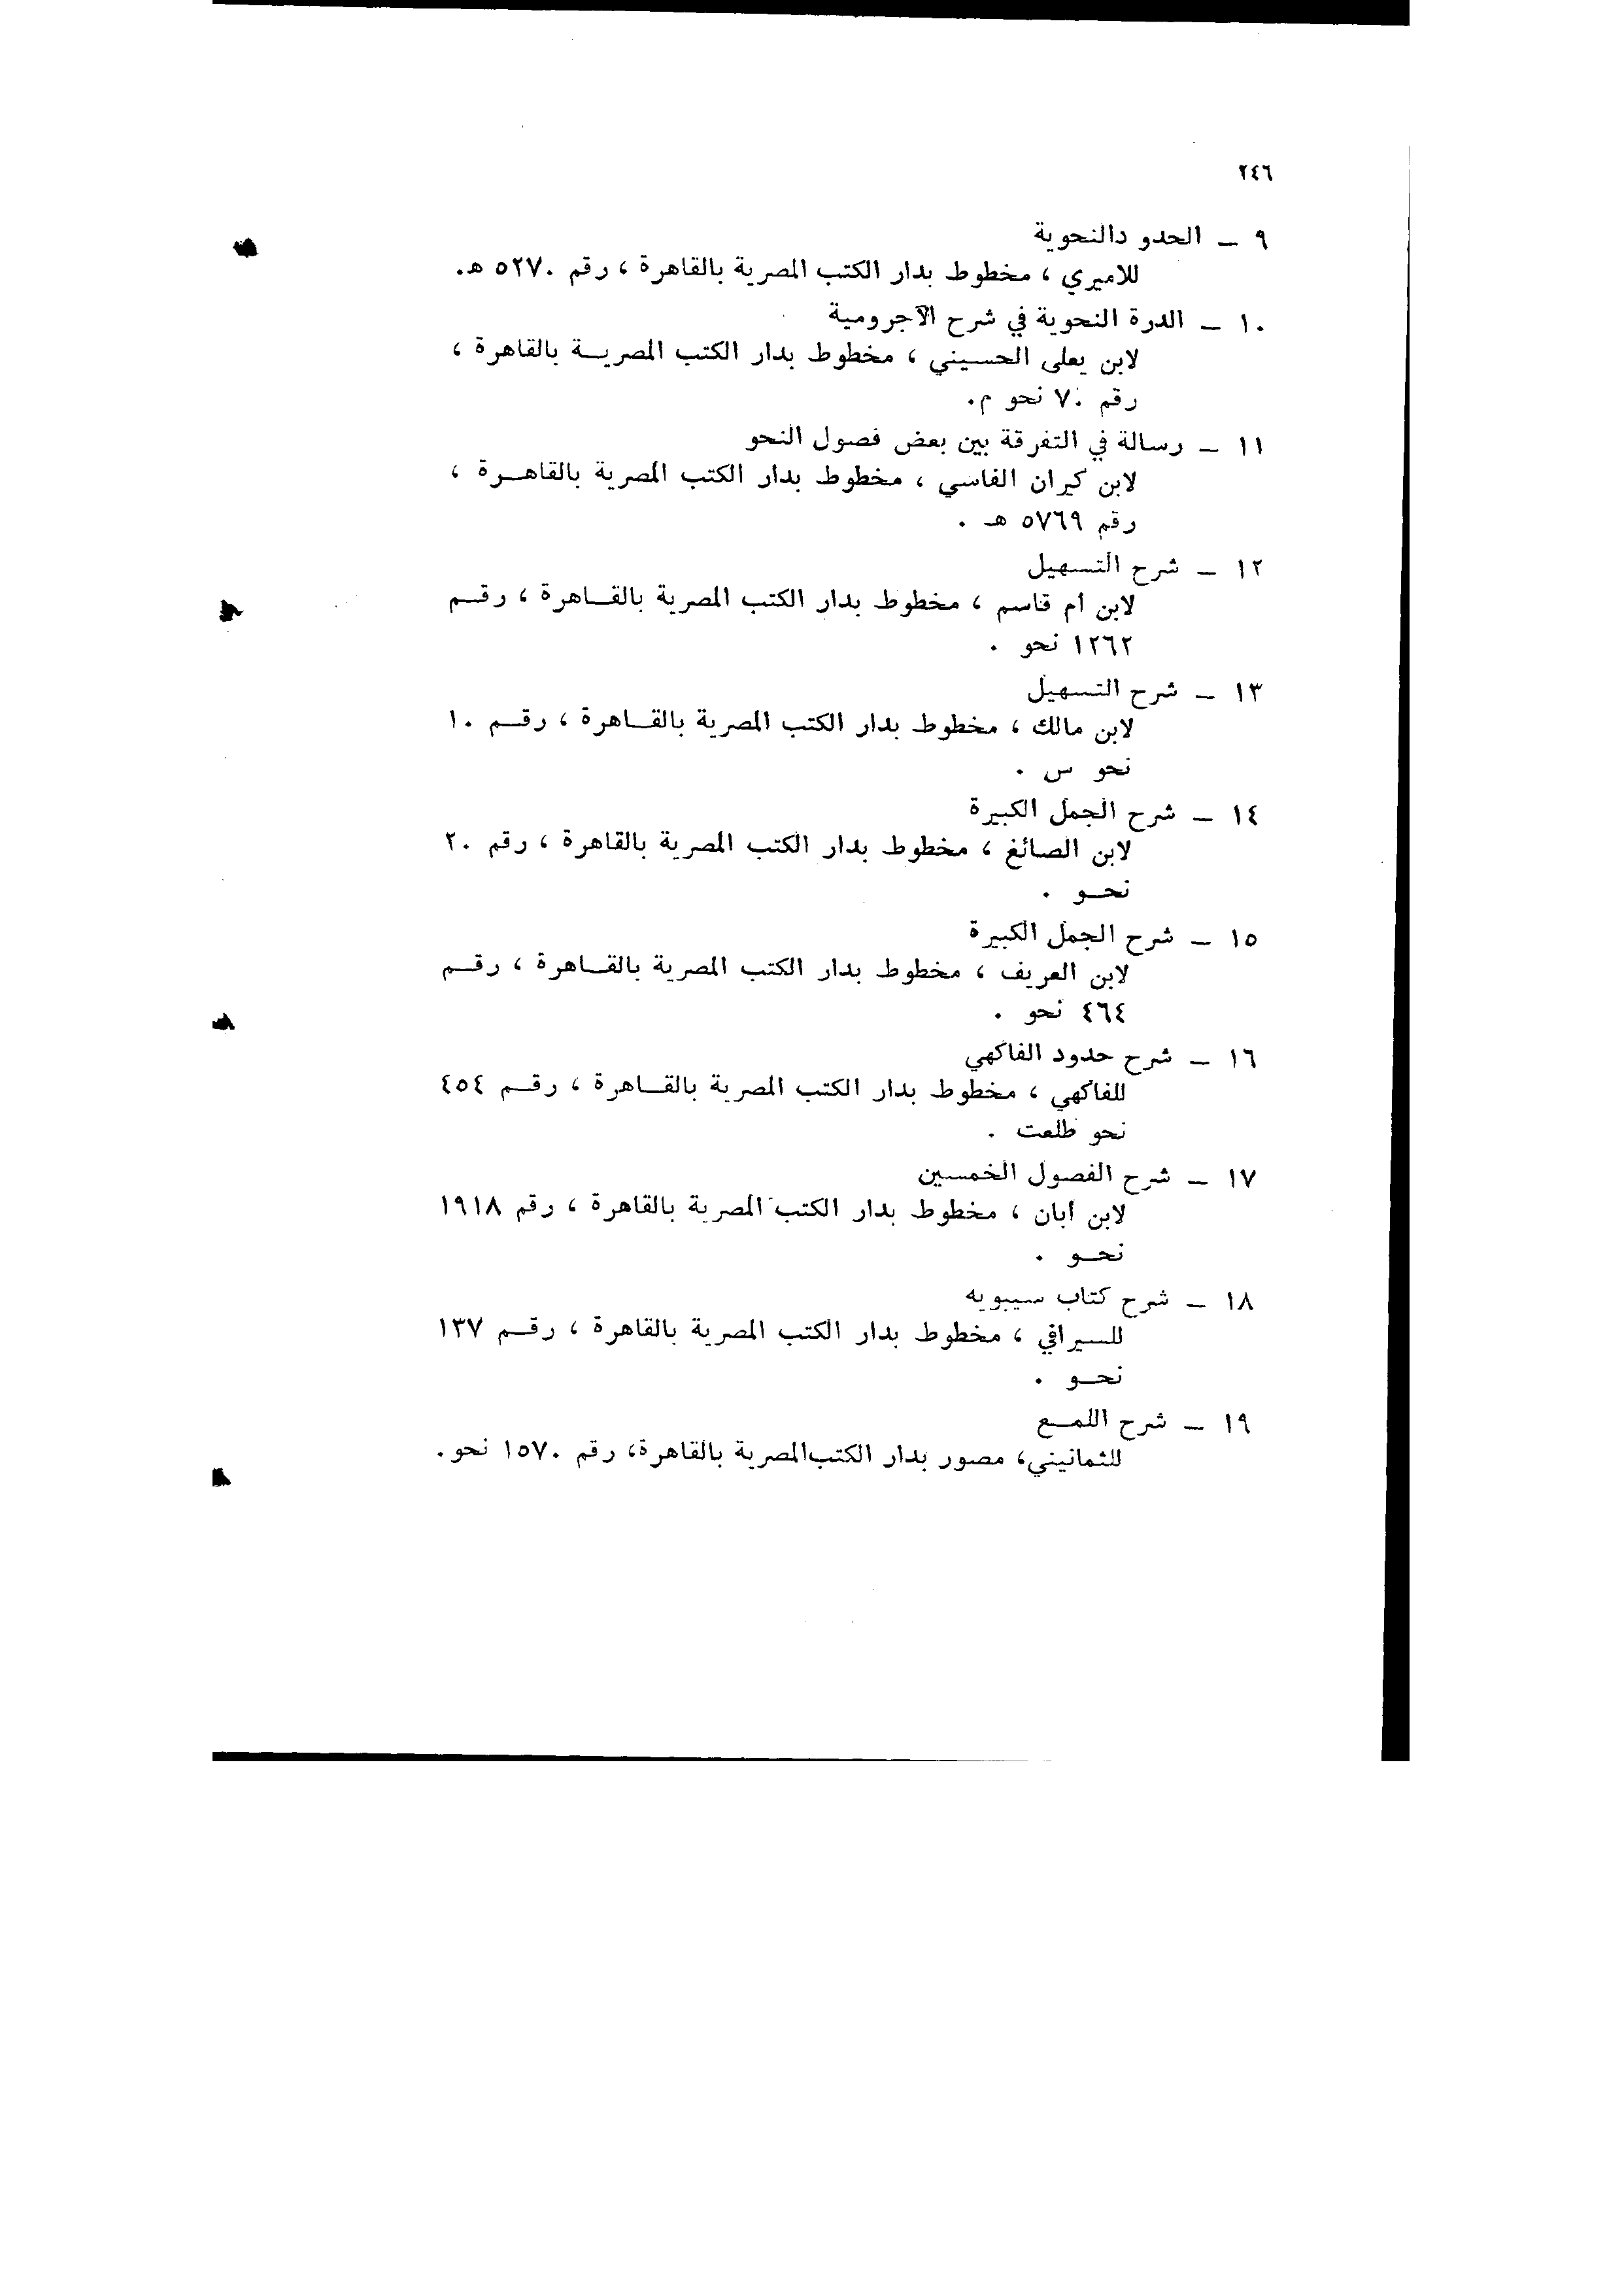 ٢٤٦
٩ — الحدو دالنحوية
للاميري ، مخطوط بدار الكتب المصرية بالقاهرة ، رقم ٥٢٧٠ هـ.
١٠ — الدرة النحوية في شرح الآجرومية
لابن يعلى الحسيني ، مخطوط بدار الكتب المصريـة بالقاهرة ،
رقم ٧٠ نحو م.
١١ — رسالة في التفرقة بين بعض فصول النحو
لابن كيران الفاسي ، مخطوط بدار الكتب المصرية بالقاهـرة ،
رقم ٥٧٦٩ هـ .
١٢ — شرح التسهيل
لابن أم قاسم ، مخطوط بدار الكتب المصرية بالقـاهرة ، رقـم
١٢٦٢ نحو .
١٣ — شرح التسهيل
لابن مالك ، مخطوط بدار الكتب المصرية بالقـاهرة ، رقـم ١٠
نحو س .
١٤ — شرح الجمل الكبيرة
لابن الصائغ ، مخطوط بدار الكتب المصرية بالقاهرة ، رقم ٢٠
نحـو .
١٥ — شرح الجمل الكبيرة
لابن العريف ، مخطوط بدار الكتب المصرية بالقـاهرة ، رقـم
٤٦٤ نحو .
١٦ — شرح حدود الفاكهي
للفاكهي ، مخطوط بدار الكتب المصرية بالقـاهرة ، رقـم ٤٥٤
نحو طلعت .
١٧ — شرح الفصول الخمسين
لابن أبان ، مخطوط بدار الكتب المصرية بالقاهرة ، رقم ١٩١٨
نحـو .
١٨ — شرح كتاب سيبويه
للسيرافي ، مخطوط بدار الكتب المصرية بالقاهرة ، رقـم ١٣٧
نحـو .
١٩ — شرح اللمـع
للثمانيني، مصور بدار الكتب المصرية بالقاهرة، رقم ١٥٧٠ نحو.